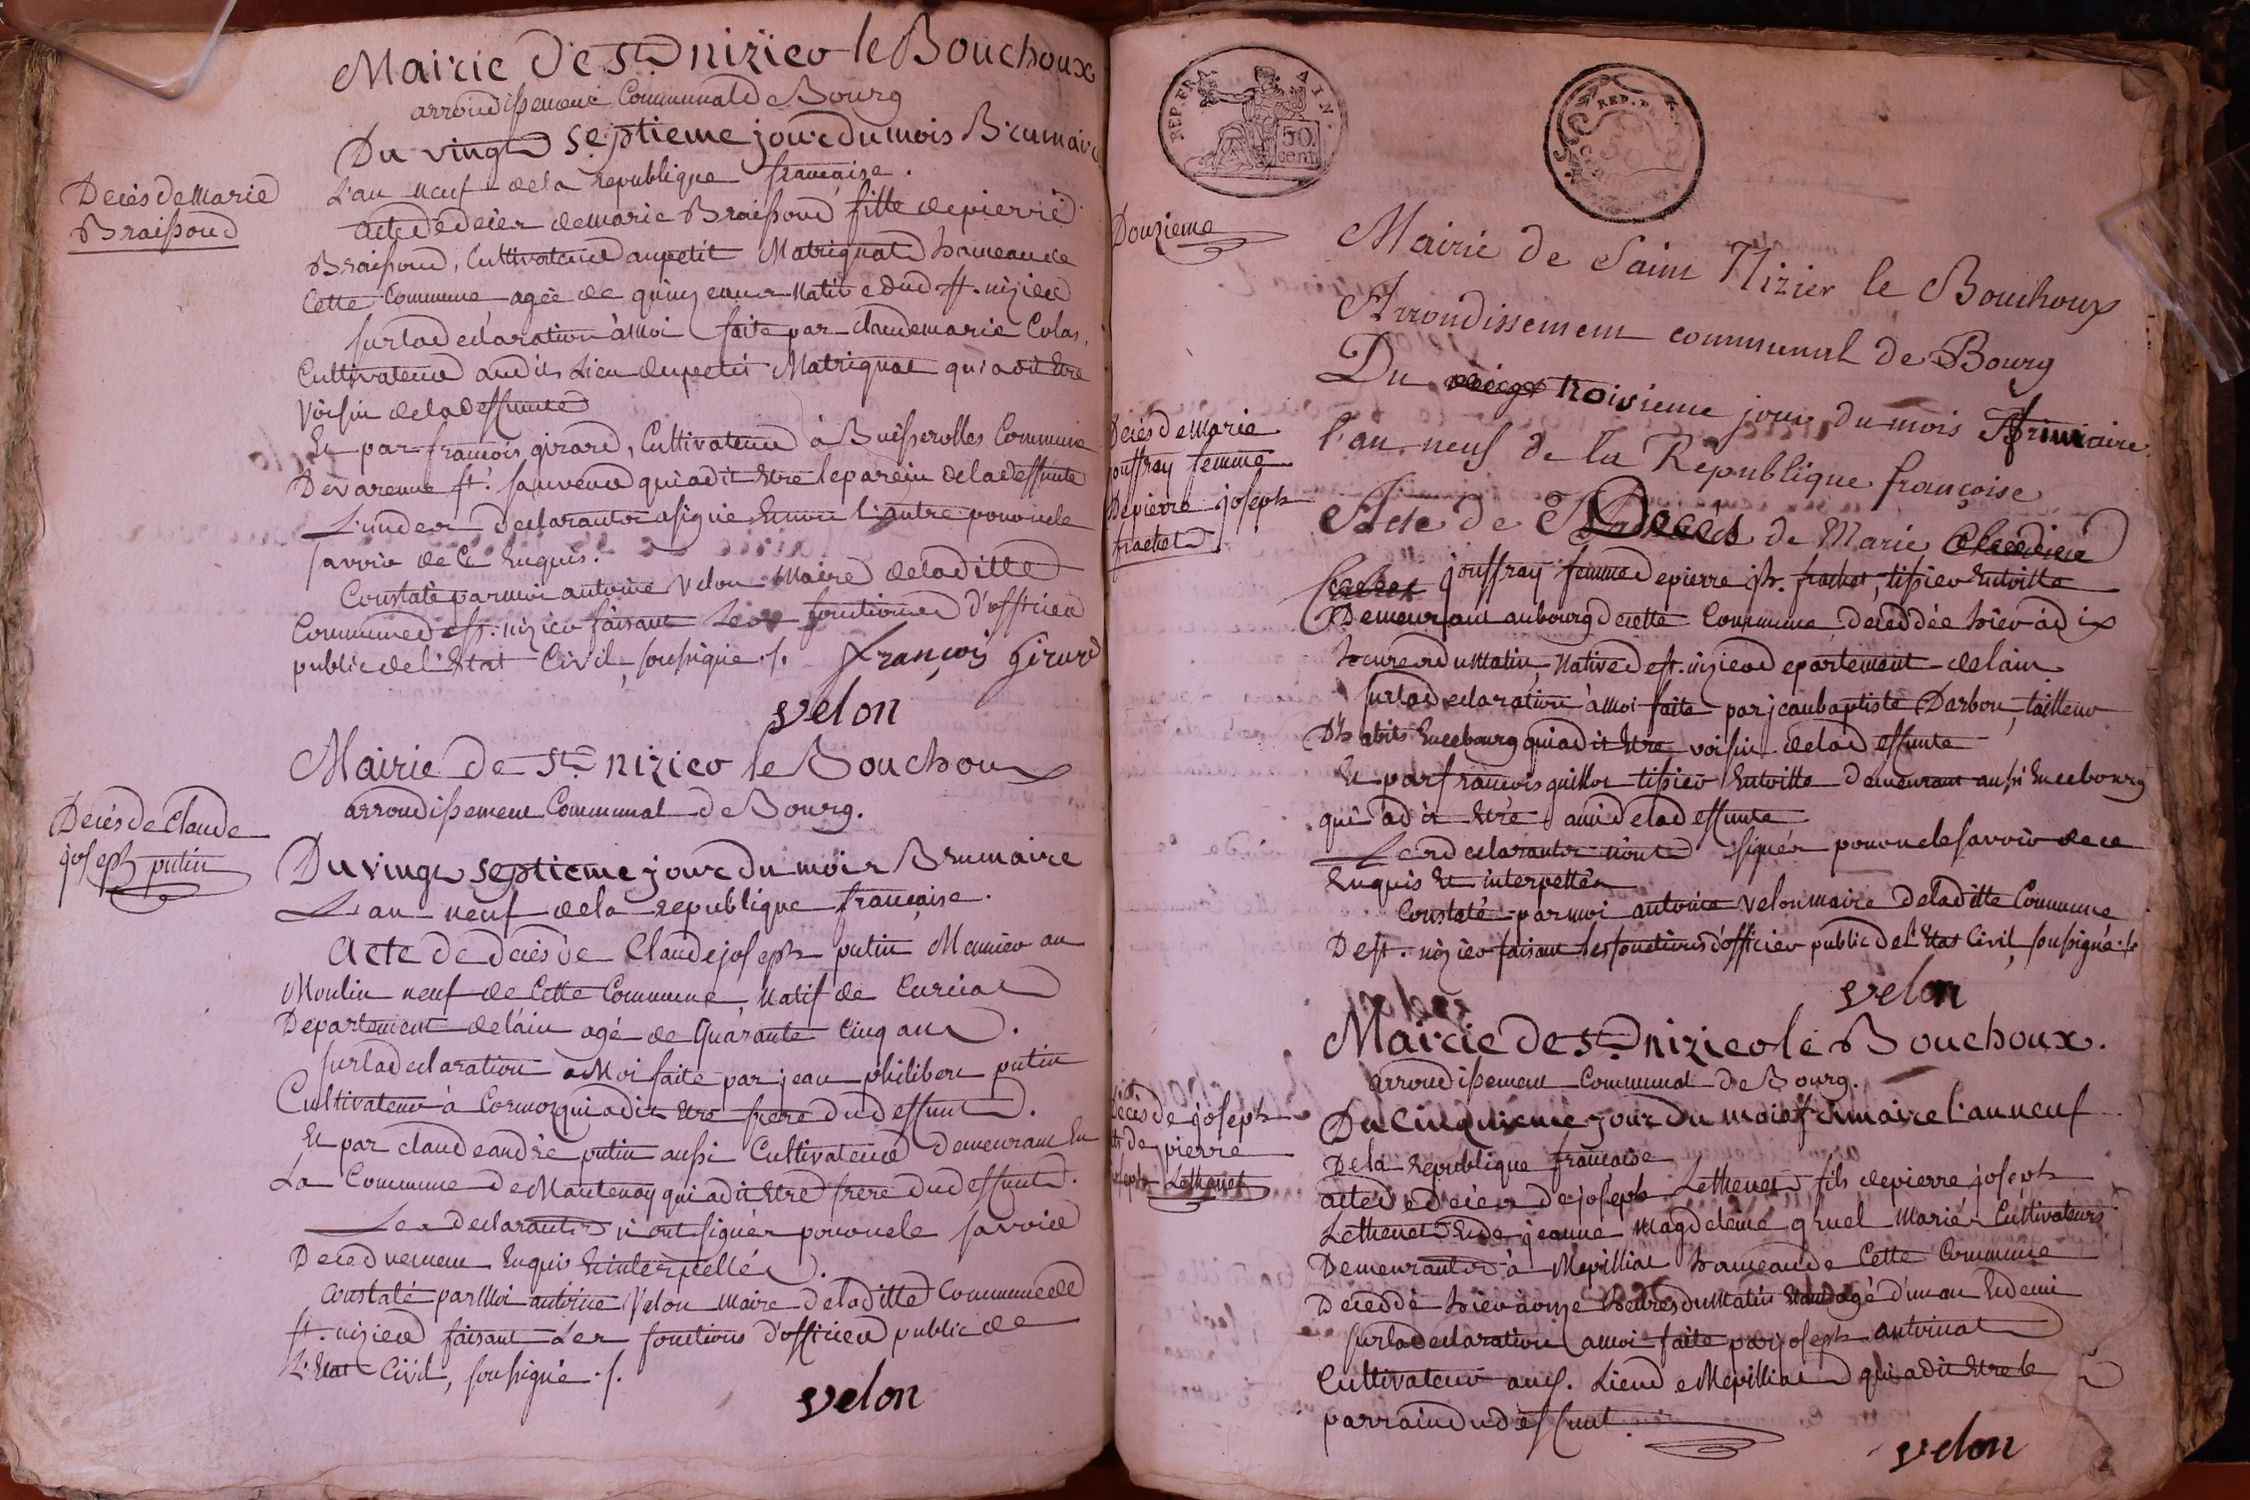 Mairie de St nizier le Bouchoux
arrondissement Communal de Bourg
Du vingt septieme jour du mois Brumaire
L'an neuf de la republique francaise.
Decès de Marie
Braissoud
Acte de décès de marie Braissoud fille de pierre
Braissoud, Cultivateur au petit Matrignat hameau de
Cette Commune agée de quinze ans Native dud st. nizier
sur la declaration à moi faite par claude marie Colas,
Cultivateur audit Lieu du petit Matrignat qui a dit Etre
voisin de la deffunte
Et par francois girard, Cultivateur à Buisserolles Commune
De varenne st. sauveur qui a dit Etre le parein de la deffunte
L'un des declarants a signé Et non l'autre pour ne le
savoir de Ce Enquis.
Constaté par moi antoine Velon Maire de la ditte
Commune de st. nizier faisant Les fonctions d'officier
public de l'Etat Civil, soussigné ./. françois Girard
velon
Mairie de St nizier le Bouchoux
arrondissement Communal de Bourg.
Decès de Claude
joseph putin
Du vingt septieme jour du mois Brumaire
L'an neuf de la republique francaise.
Acte de decès de Claude joseph putin Meunier au
Moulin neuf de Cette Commune, Natif de Curciat
Departement de l'ain agé de Quarante Cinq ans.
sur la declaration a Moi faite par jean philibert putin
Cultivateur à Cormoz qui a dit Etre frere du deffunt.
Et par claude andré putin aussi Cultivateur Demeurant En
La Commune de Mantenay qui a dit Etre frere du deffunt.
Les declarants n'ont signés pour ne le savoir
De ce duement Enquis Et interpellés.
Constaté par Moi antoine Velon maire de la ditte Commune de
st. nizier faisant Les fonctions d'officier public de
L'Etat Civil, soussigné ./.
velon
REP. FRA. AIN.
50
cent
REP. F.
Douzieme
Mairie de Saint Nizier le Bouchoux
Arrondissement communal de Bourg
Du troisieme jour du mois Frimaire
l'an neuf de la République françoise
Decès de Marie
jouffray femme
De pierre joseph
frachet
Acte de Décès de Marie
jouffray femme de pierre jph. frachet, tissier En toille
Demeurant au bourg de cette Commune, decedée hier à dix
heures du Matin, Native de st. nizier departement de l'ain
sur la declaration à moi faite par jean baptiste Darbon, tailleur
D'habits En ce bourg qui a dit Etre voisin de la deffunte
Et par francois guillot tissier En toille demeurant aussi En ce bourg
qui a dit Etre ami de la deffunte
Les declarants n'ont signés pour ne le savoir de ce
Enquis Et interpellés
Constaté par moi antoine Velon maire de la ditte Commune
De st. nizier faisant les fonctions d'officier public de l'Etat Civil, soussigné ./.
velon
Mairie de St nizier le Bouchoux.
arrondissement Communal de Bourg.
Du Cinquieme jour du mois frimaire l'an neuf
De la republique francaise
Decès de joseph
fils de pierre
joseph Lethenet
acte de décès de joseph Lethenet fils de pierre joseph
Lethenet Et de jeanne Magdeleine gruel Mariés Cultivateurs
Demeurants à Mépilliat hameau de Cette Commune
Decedé hier à onze heures du Matin agé d'un an Et demi
sur la declaration a moi faite par joseph antoinat
Cultivateur aud. Lieu de Mépilliat qui a dit Etre le
parrain du deffunt
velon